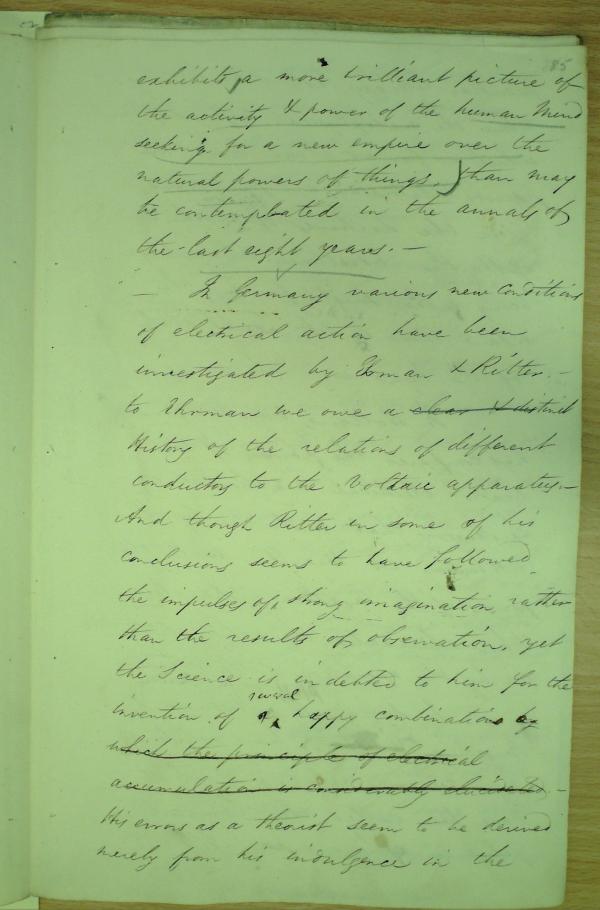 85
exhibits, a more brilliant picture of
the activity & power of the human Mind
seeking for a new empire over the
natural powers of things, than may
be contemplated in the annals of
the last eight years. —
— In Germany various new Conditions
of electrical action have been
investigated by Erman & Ritter. —
to Ehrman we owe a clear & distinct
History of the relations of different
conductors to the Voltaic apparatus —
And though Ritter in some of his
conclusions seems to have followed
the impulses of strong imagination rather
than the results of observation, yet
the Science is indebted to him for the
several
invention of happy combinations by
which the principle of electrical
accumulation is considerably elucidated —
His errors as a theorist seem to be derived
merely from his indulgence in the